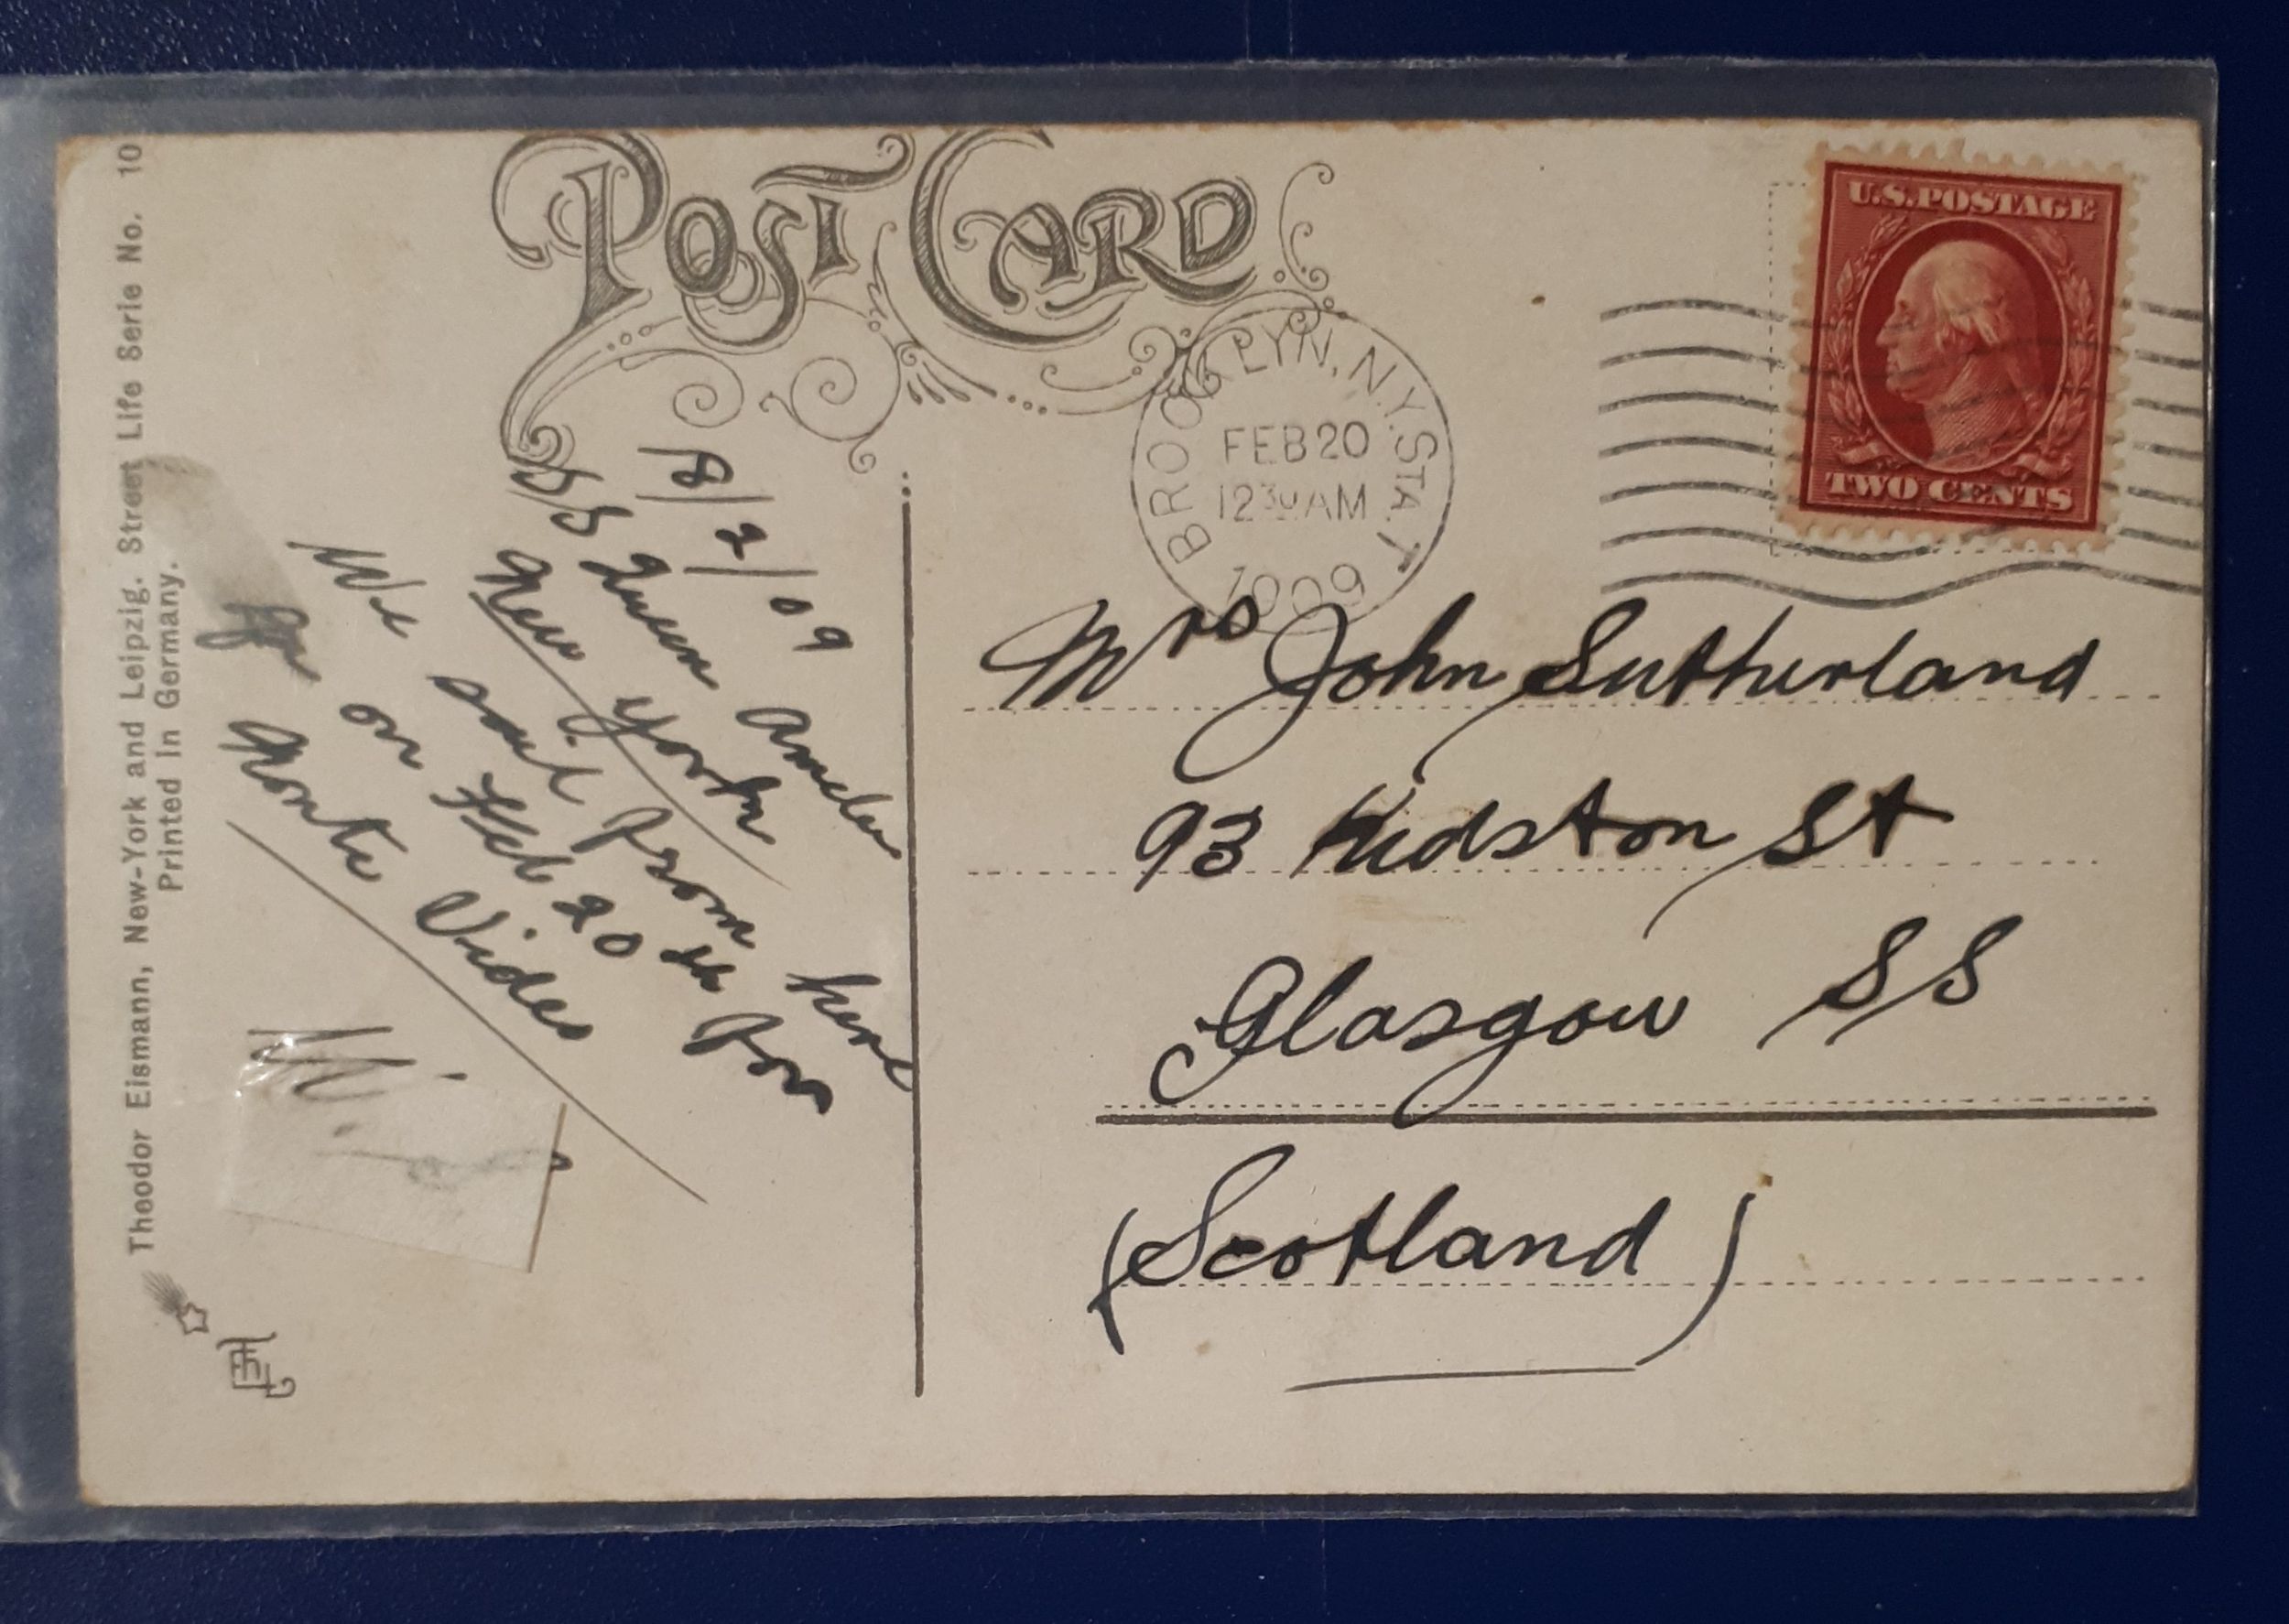 POST CARD
Theodor Eismann, New-York and Leipzig. Street Life Serie No. 10
Printed in Germany.
18/2/09
SS Queen Amelie
New York
We sail from here
on Feb 20th for
Monte Video
U.S.POSTAGE
TWO CENTS
BROOKLYN, N.Y. STA. T
FEB 20
12 30 AM
1909
Mrs John Sutherland
93 Kidston St
Glasgow SS
(Scotland)